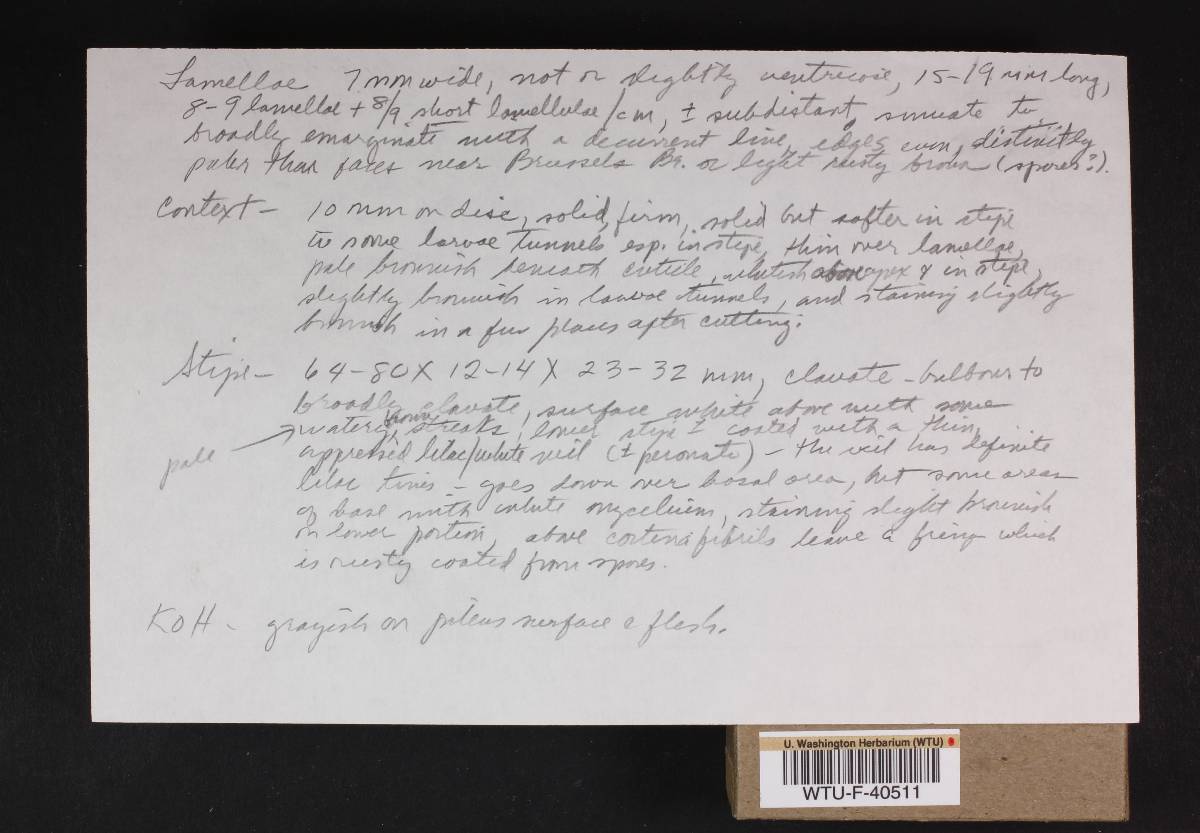 Lamellae 7 mm wide, not or slightly ventricose, 15-19 mm long,
8-9 lamellae + 8/9 short lamellulae/cm, ± subdistant, sinuate to
broadly emarginate with a decurrent line, edges even, distinctly
paler than faces near Brussels Br. or light rusty brown (spores?).
Context - 10 mm on disc, solid, firm, solid but softer in stipe
to some larvae tunnels esp. in stipe, thin over lamellae,
pale brownish beneath cuticle, whitish above apex & in stipe,
slightly brownish in larvae tunnels, and staining slightly
brownish in a few places after cutting.
Stipe - 64-80 X 12-14 X 23-32 mm, clavate-bulbous to
broadly clavate, surface white above with some
pale → watery brown streaks, lower stipe ± coated with a thin,
appressed lilac/white veil (± peronate) - the veil has definite
lilac tints - goes down over basal area, but some areas
of base with white mycelium, staining slight brownish
on lower portion, above cortina fibrils leave a fring which
is rusty coated from spores.
KOH - grayish on pileus surface & flesh.
U. Washington Herbarium (WTU)
WTU-F-40511